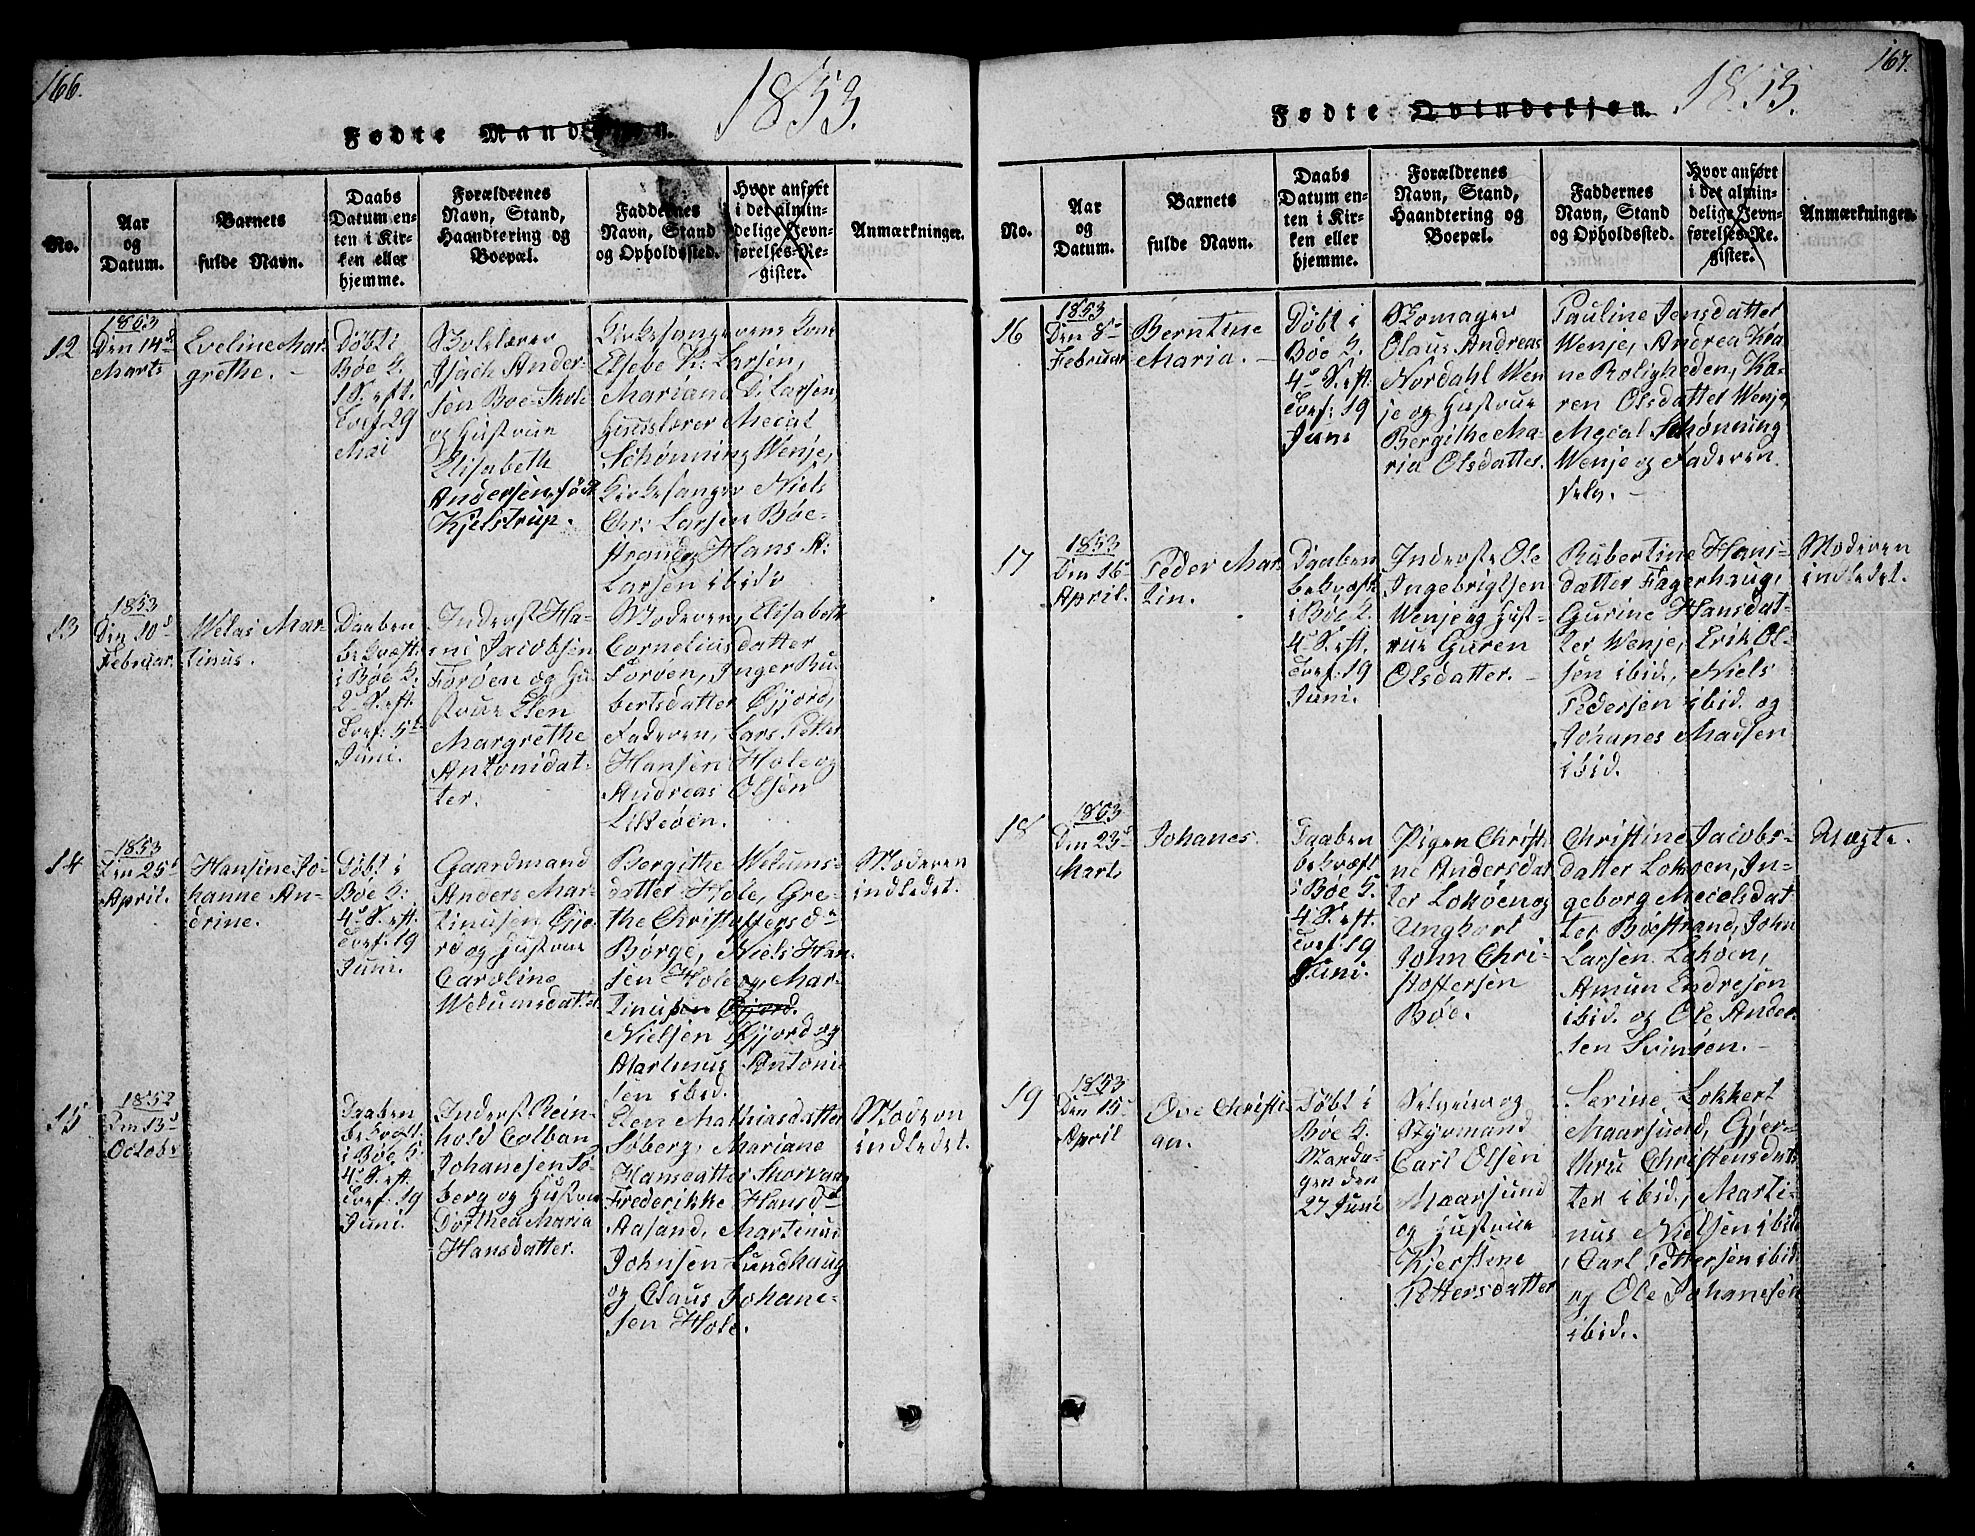 166.
Fødte Mandkjøn. 1853.
No.
Aar
og
Datum.
Barnets
fulde Navn.
Daabs
Datum en-
ten i Kir-
ken eller
hjemme.
Forældrenes
Navn, Stand,
Haandtering og
Boepæl.
Faddernes
Navn, Stand
og Opholdssted.
Hvor anført
i det almin-
delige Jevn-
førelses-Re-
gister.
Anmærkninger.
12
1853
Den 14de
Marts
Eveline Mar-
grethe.
Døbt i
Bøe K.
1 S. eft.
Tref. 29
Mai
Skolelærer
Isach Ander-
sen Bøe-Skole
og Hustrue
Elisabeth
Andersen, født
Kjelstrup.
Kirkesangerens Kone
Elsebe K. Larsen,
Mariana D. Larsen
Huuslærer Mecal
Schønning Wenje,
Kirkesanger Niels
Chr: Larsen Bøe-
strand, Hans A:
Larsen ibid.
13
1853
Den 10d
Februar.
Welas Mar-
tinus.
Daaben
bekræft.
i Bøe K.
2 S. eft.
Tref: 5te
Juni.
Inderst Ha-
ini Jacobsen
Forøen og Hu-
strue Elen
Margrethe
Antonidat-
ter.
Moderen, Elisabeth
Corneliusdatter
Forøen, Inger Ru-
bertsdatter Gjjord,
Faderen, Lars Petter
Hansen Hole og
Andreas Olsen
Litleøen.
14
1853
Den 25d
April.
Hansine Jo-
hanne An-
drine.
Døbt i
Bøe K:
4de S. eft.
Tref. 19
Juni.
Gaardmand
Anders Mar-
tinusen Gjjo-
rd og Hustrue
Caroline
Wekumsdatter
Bergithe Wekums-
datter Hole, Gre-
the Christoffersdr
Børge, Niels Han-
sen Hole og Mar-
tinusen Gjjord.
Nielsen Gjjord og
Martinus Antoni-
sen ibid.
Moderen
indledet.
15
1852
Den 13d
October
Daaben
bekræft.
i Bøe K:
4de S. eft.
Tref: 19
Juni.
Inderst Rein-
hold Colban
Johanesen Sø-
berg og Hustrue
Dorthea Maria
Hansdatter.
Elen Mathiasdatter
Søberg, Mariane
Hansdatter Skorvaag
Frederikke Hansdr
Aasand, Martinus
Johnsen Lundhaug
og Claus Johane-
sen Hole.
Moderen
indledet.
167.
Fødte Qvindekjøn. 1853.
No.
Aar
og
Datum.
Barnets
fulde Navn.
Daabs
Datum en-
ten i Kir-
ken eller
hjemme.
Forældrenes
Navn, Stand,
Haandtering og
Boepæl.
Faddernes
Navn, Stand
og Opholdssted.
Hvor anført
i det almin-
delige Jevn-
førelses-Re-
gister.
Anmærkninger.
16
1853
Den 8de
Februar
Berntine
Maria.
Døbt i
Bøe K.
4de S. eft.
Tref: 19
Juni
Skomager
Olaus Andreas
Nordahl Wen-
je og Hustrue
Bergithe Ma-
ria Olsdatter.
Pauline Jensdatter
Wenje, Andrea Ka-
ne Roligheden, Ka-
ren Olsdatter Wenje,
Mecal Schønning
Wenje og Faderen
selv.
17
1853
Den 16de
April.
Peder Mar-
tin.
Daaben
bekræft.
i Bøe K.
4de S. eft.
Tref: 19
Juni.
Inderste Ole
Ingebrigtsen
Wenje og Hust-
rue Guren
Olsdatter.
Rubertine Hans-
datter Fagerhaug,
Gurine Hansdat-
ter Wenje, Erik Ol-
sen ibid., Niels
Pedersen ibid. og
Johanes Madsen
ibid.
Moderen
indledet.
18
1853
Den 23d
Marts
Johanes.
Daaben
bekræft.
i Bøe K.
4de S. eft.
Tref: 19
Juni.
Pigen Christi-
ne Andersdat-
ter Lokøen og
Ungkarl
John Chri-
stofersen
Bøe.
Christine Jacobs-
datter Lokøen, In-
geborg Mecelsdat-
ter Bøestrand, John
Larsen Lokøen,
Amun Endresen
ibid. og Ole Ander-
sen Svinøen.
Uægte.
19
1853
Den 15de
April
Ove Christi-
an.
Døbt i
Bøe K.
Manda-
gen den
27 Juni
Selveier og
Styrmand
Carl Olsen
Maarsund
og Hustrue
Kjerstine
Pettersdatter
Serine Lokkert
Maarsund, Gjer-
thru Christensdat-
ter ibid., Marti-
nus Nielsen ibid.
, Carl Pettersen ibid.
og Ole Johanesen
ibid.